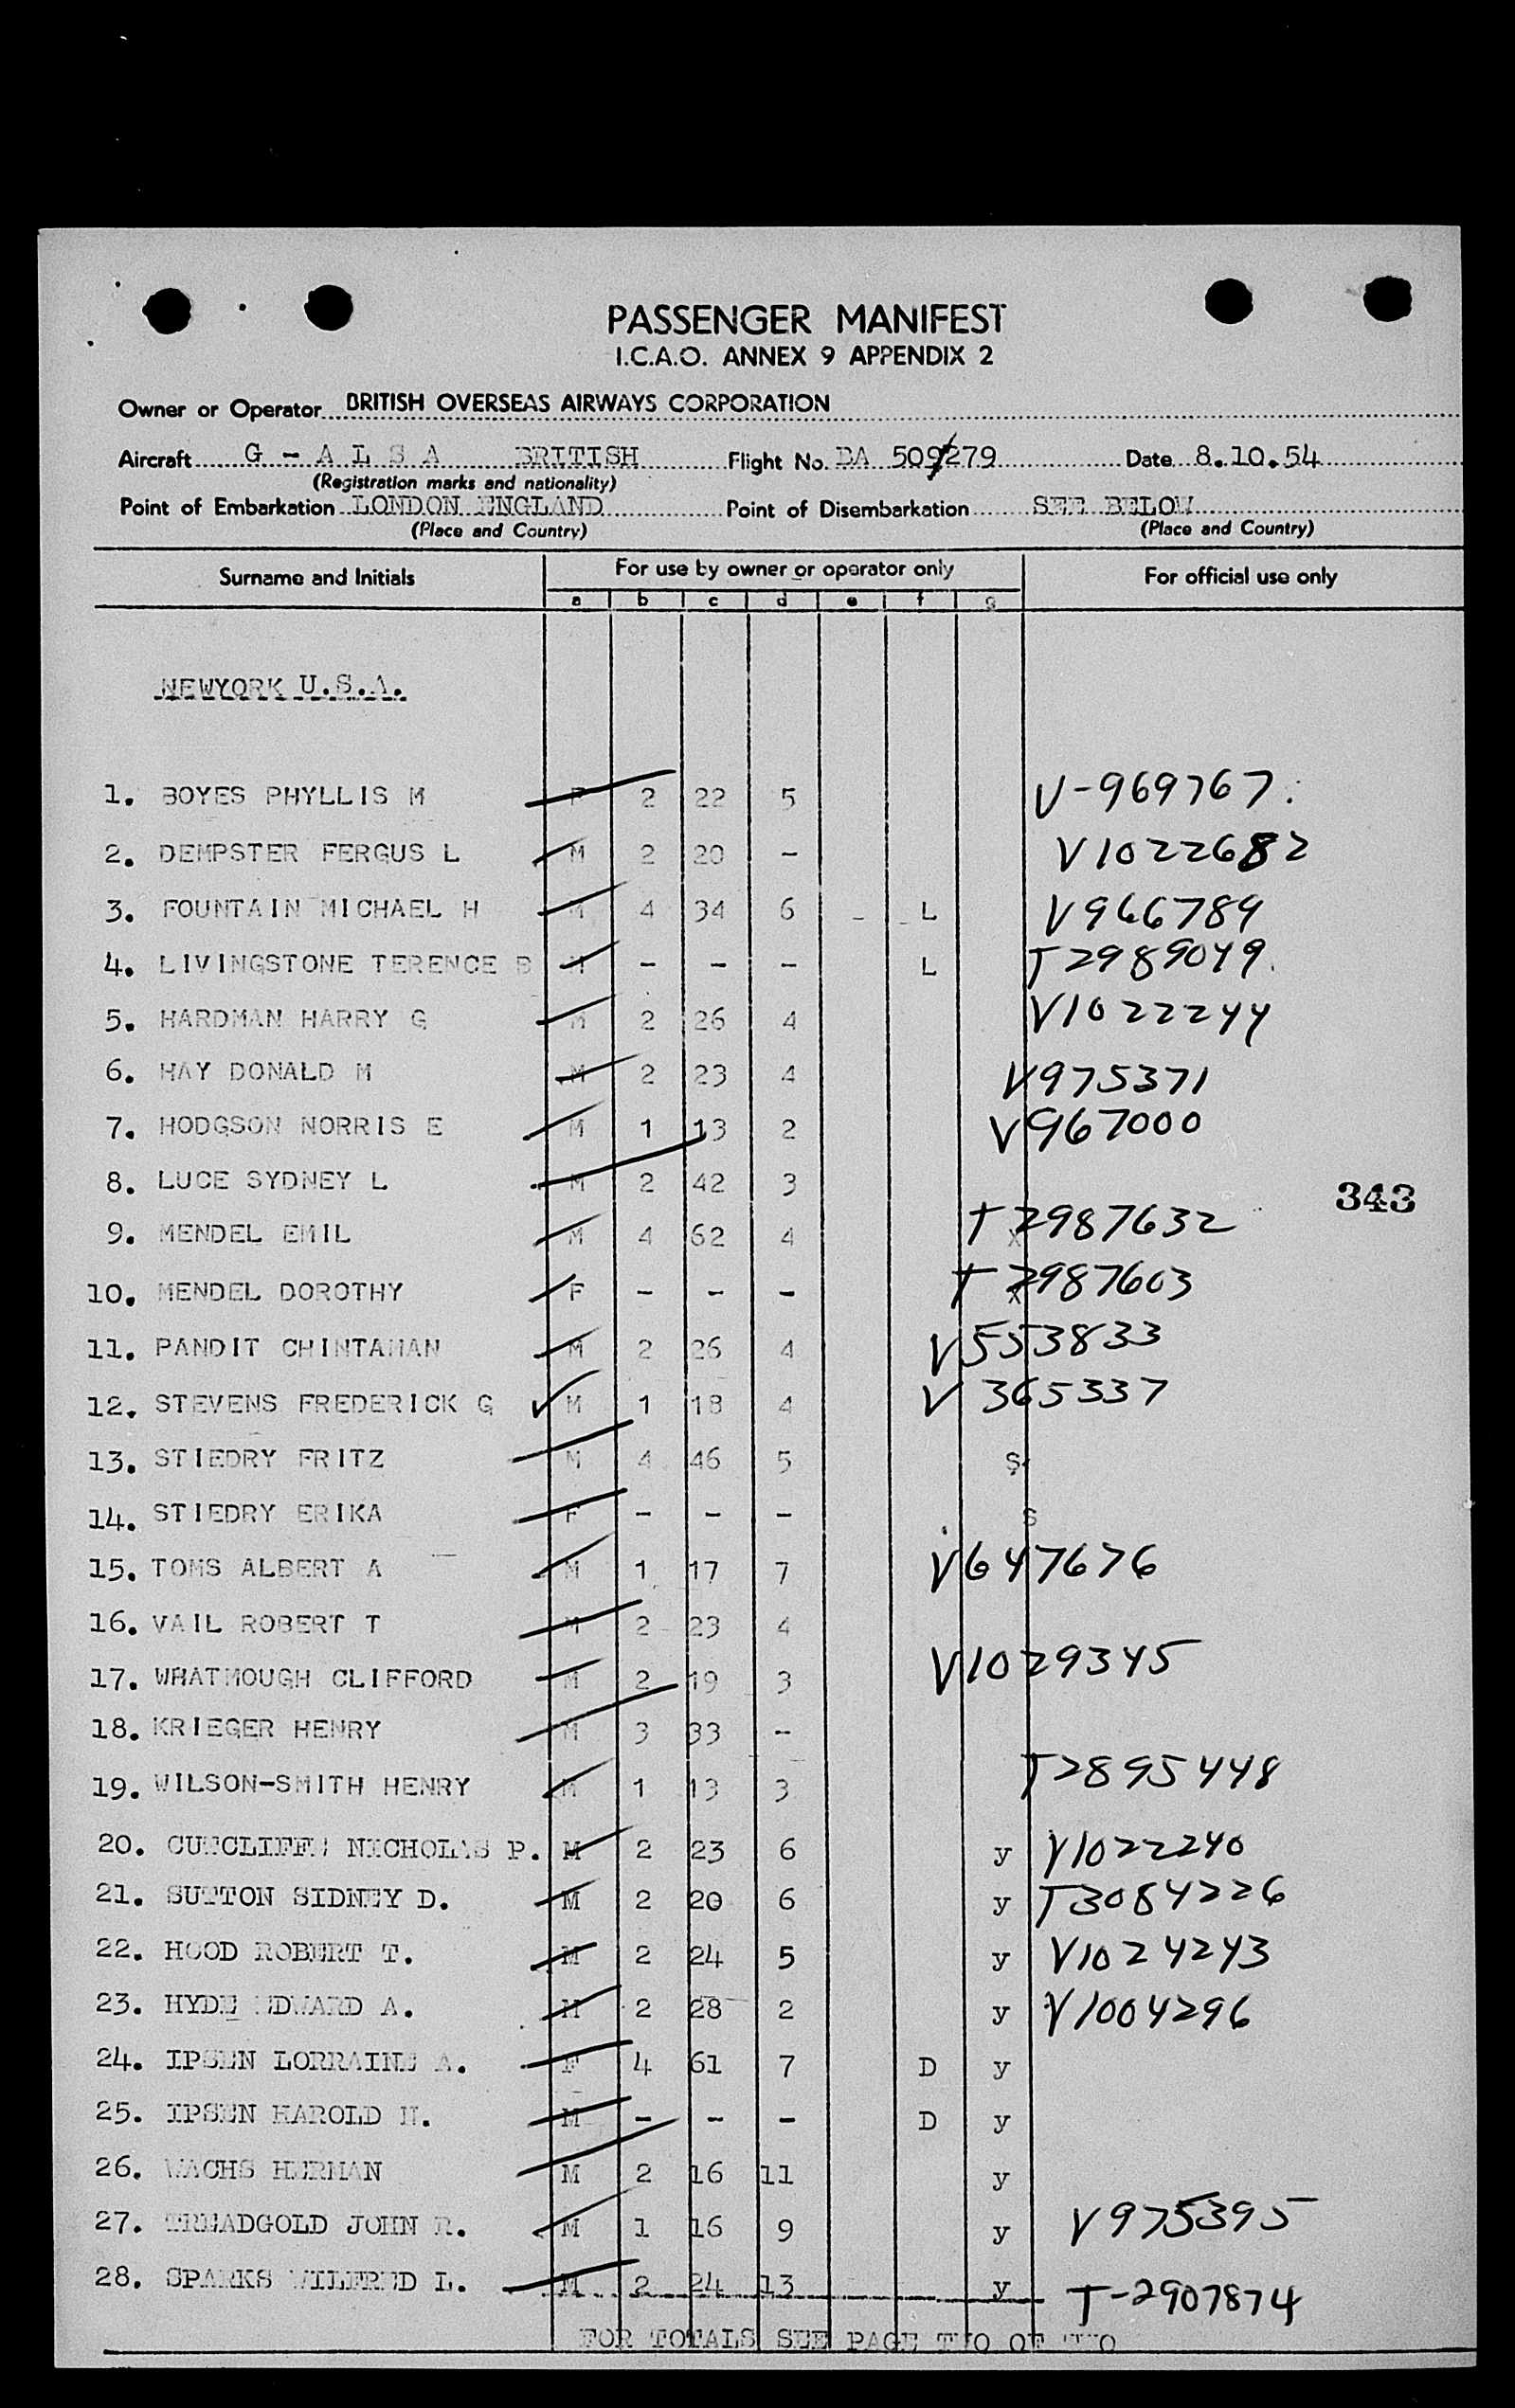 PASSENGER MANIFEST
I.C.A.O. ANNEX 9 APPENDIX 2
Owner or Operator BRITISH OVERSEAS AIRWAYS CORPORATION
Aircraft G - A L S A BRITISH Flight No. BA 509/279 Date 8.10.54
(Registration marks and nationality)
Point of Embarkation LONDON ENGLAND Point of Disembarkation SEE BELOW
(Place and Country) (Place and Country)
Surname and Initials For use by owner or operator only For official use only
a b c d e f g
NEWYORK U.S.A.
1. BOYES PHYLLIS M F 2 22 5 V-969767
2. DEMPSTER FERGUS L M 2 20 - V1022682
3. FOUNTAIN MICHAEL H M 4 34 6 - L V966789
4. LIVINGSTONE TERENCE B M - - - L T2989049
5. HARDMAN HARRY G M 2 26 4 V1022244
6. HAY DONALD M M 2 23 4 V975371
7. HODGSON NORRIS E M 1 13 2 V967000
8. LUCE SYDNEY L M 2 42 3
343
9. MENDEL EMIL M 4 62 4 X T2987632
10. MENDEL DOROTHY F - - - X T2987603
11. PANDIT CHINTAMAN M 2 26 4 V553833
12. STEVENS FREDERICK G M 1 18 4 V 365337
13. STIEDRY FRITZ M 4 46 5 S
14. STIEDRY ERIKA F - - - S
15. TOMS ALBERT A M 1 17 7 V647676
16. VAIL ROBERT T M 2 23 4
17. WHATMOUGH CLIFFORD M 2 19 3 V1029345
18. KRIEGER HENRY M 3 33 -
19. WILSON-SMITH HENRY M 1 13 3 T2895448
20. CUTCLIFFE NICHOLAS P. M 2 23 6 y V1022240
21. SUTTON SIDNEY D. M 2 20 6 y T3084226
22. HOOD ROBERT T. M 2 24 5 y V1024243
23. HYDE EDWARD A. M 2 28 2 y V1004296
24. IPSEN LORRAINE A. F 4 61 7 D y
25. IPSEN HAROLD N. M - - - D y
26. WACHS HERMAN M 2 16 11 y
27. TREADGOLD JOHN R. M 1 16 9 y V975395
28. SPARKS WILFRED L. M 2 24 13 y T-2907874
FOR TOTALS SEE PAGE TWO OF TWO